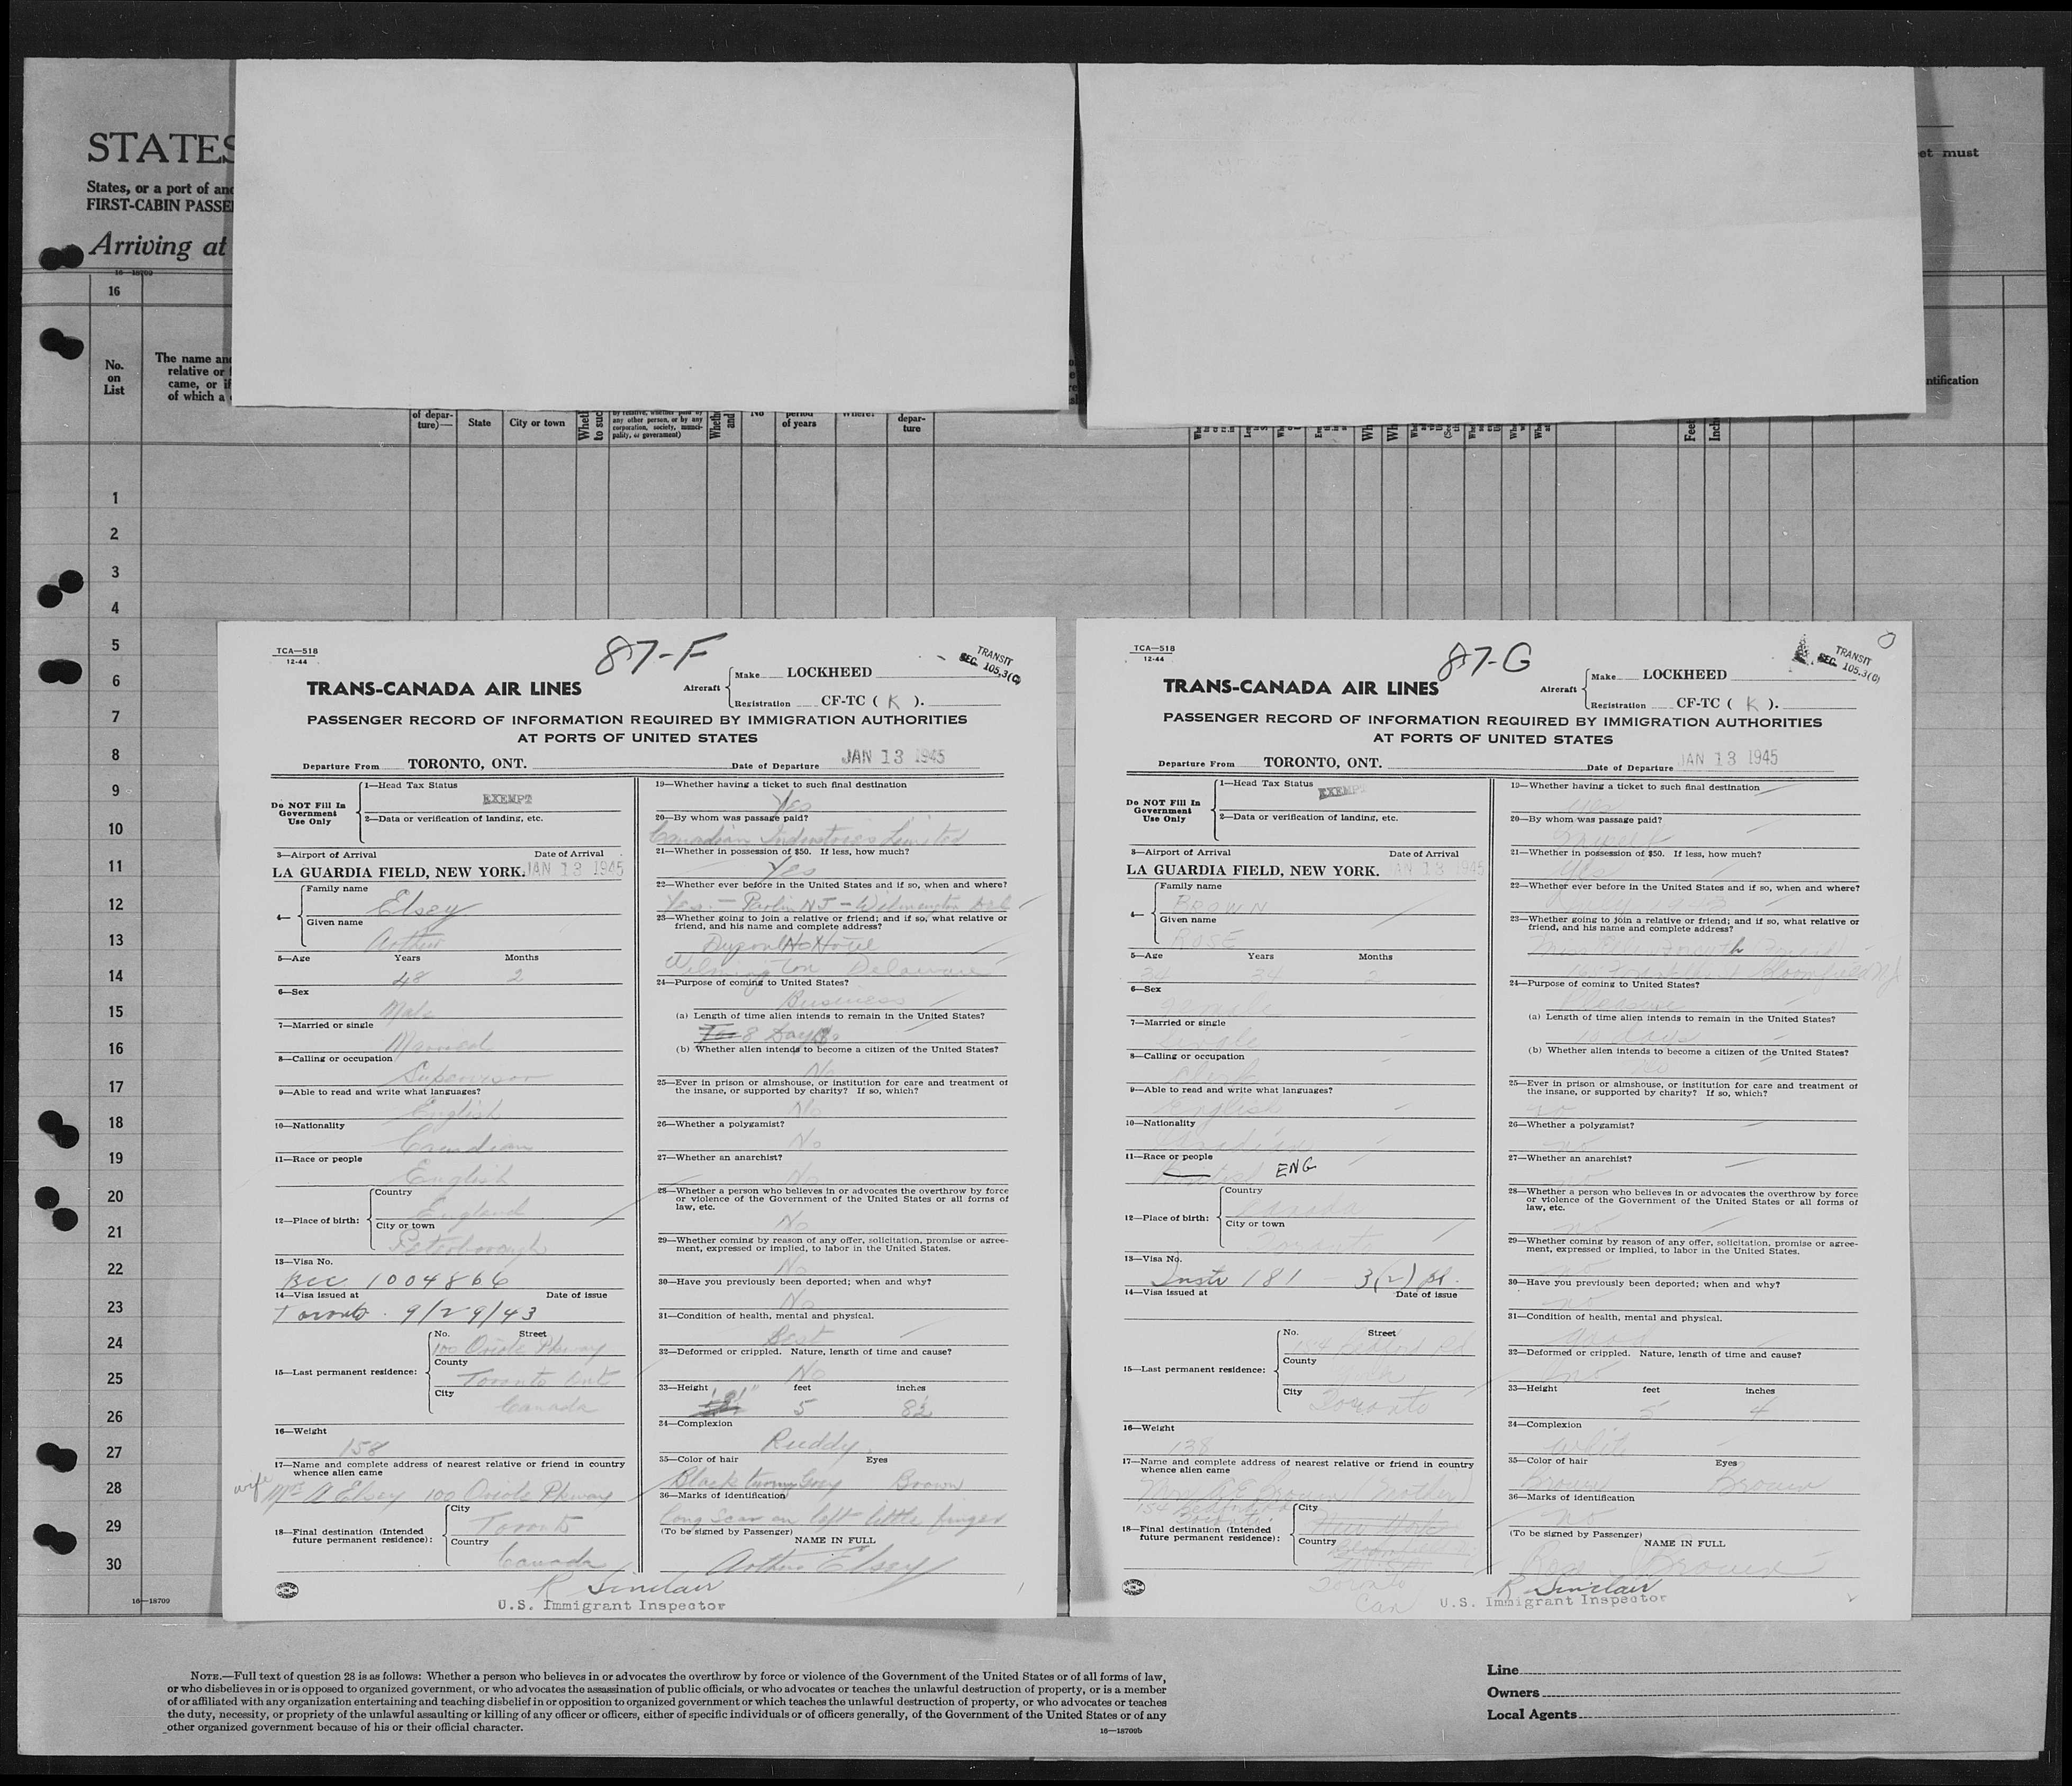 STATES
States, or a port of
FIRST-CABIN
Arriving at
et must
16—18709
16
No.
on
List
The name
relative or
came, or if
of which a
of depar-
ture)—
State
City or town
to suc
by relative, whether paid by
any other person, or by any
corporation, society, munici-
pality, or government)
and
No
period
of years
Where?
depar-
ture
Feet
ntification
1
2
3
4
5
6
7
8
9
10
11
12
13
14
15
16
17
18
19
20
21
22
23
24
25
26
27
28
29
30
16—18709
TCA—518
12-44
87-F
TRANSIT
SEC. 105.3(C)
TRANS-CANADA AIR LINES
Aircraft
Make LOCKHEED
Registration CF-TC ( K ).
PASSENGER RECORD OF INFORMATION REQUIRED BY IMMIGRATION AUTHORITIES
AT PORTS OF UNITED STATES
Departure From TORONTO, ONT. Date of Departure JAN 13 1945
Do NOT Fill In
Government
Use Only
1—Head Tax Status
EXEMPT
2—Data or verification of landing, etc.
3—Airport of Arrival Date of Arrival
LA GUARDIA FIELD, NEW YORK. JAN 13 1945
4—
Family name
Elsey
Given name
Arthur
5—Age Years Months
48 2
6—Sex
Male
7—Married or single
Married
8—Calling or occupation
Supervisor
9—Able to read and write what languages?
English
10—Nationality
Canadian
11—Race or people
English
12—Place of birth:
Country
England
City or town
Peterborough
13—Visa No.
BCC 1004866
14—Visa issued at Date of issue
Toronto 9/29/43
15—Last permanent residence:
No. Street
100 Oriole Pkway
County
Toronto Ont
City
Canada
16—Weight
158
17—Name and complete address of nearest relative or friend in country
whence alien came
wife
Mrs A Elsey 100 Oriole Pkway
18—Final destination (Intended
future permanent residence):
City
Toronto
Country
Canada
R Sinclair
U.S. Immigrant Inspector
19—Whether having a ticket to such final destination
Yes
20—By whom was passage paid?
Canadian Industries Limited
21—Whether in possession of $50. If less, how much?
Yes
22—Whether ever before in the United States and if so, when and where?
Yes. — Parlin NJ — Wilmington Del
23—Whether going to join a relative or friend; and if so, what relative or
friend, and his name and complete address?
Dupont No Hotel
Wilmington Delaware
24—Purpose of coming to United States?
Business
(a) Length of time alien intends to remain in the United States?
8 Days
(b) Whether alien intends to become a citizen of the United States?
No
25—Ever in prison or almshouse, or institution for care and treatment of
the insane, or supported by charity? If so, which?
No
26—Whether a polygamist?
No
27—Whether an anarchist?
No
28—Whether a person who believes in or advocates the overthrow by force
or violence of the Government of the United States or all forms of
law, etc.
No
29—Whether coming by reason of any offer, solicitation, promise or agree-
ment, expressed or implied, to labor in the United States.
No
30—Have you previously been deported; when and why?
No
31—Condition of health, mental and physical.
Best
32—Deformed or crippled. Nature, length of time and cause?
No
33—Height feet inches
5 8½
34—Complexion
Ruddy
35—Color of hair Eyes
Black turning Grey Brown
36—Marks of identification
Long Scar on left little finger
(To be signed by Passenger) NAME IN FULL
Arthur Elsey
TCA—518
12-44
87-G
TRANSIT
SEC. 105.3(C)
TRANS-CANADA AIR LINES
Aircraft
Make LOCKHEED
Registration CF-TC ( K ).
PASSENGER RECORD OF INFORMATION REQUIRED BY IMMIGRATION AUTHORITIES
AT PORTS OF UNITED STATES
Departure From TORONTO, ONT. Date of Departure JAN 13 1945
Do NOT Fill In
Government
Use Only
1—Head Tax Status
EXEMPT
2—Data or verification of landing, etc.
3—Airport of Arrival Date of Arrival
LA GUARDIA FIELD, NEW YORK. JAN 13 1945
4—
Family name
BROWN
Given name
ROSE
5—Age Years Months
34 34 2
6—Sex
Female
7—Married or single
Single
8—Calling or occupation
Clerk
9—Able to read and write what languages?
English
10—Nationality
Canadian
11—Race or people
ENG
12—Place of birth:
Country
Canada
City or town
Toronto
13—Visa No.
Instr 181 3(2)
14—Visa issued at Date of issue
15—Last permanent residence:
No. Street
Bedford Rd
County
York
City
Toronto
16—Weight
138
17—Name and complete address of nearest relative or friend in country
whence alien came
Mrs A E Brown (Mother)
154 Bedford Rd
Toronto
18—Final destination (Intended
future permanent residence):
City
New York
Country
Toronto
Can
R Sinclair
U.S. Immigrant Inspector
19—Whether having a ticket to such final destination
Yes
20—By whom was passage paid?
Myself
21—Whether in possession of $50. If less, how much?
Yes
22—Whether ever before in the United States and if so, when and where?
23—Whether going to join a relative or friend; and if so, what relative or
friend, and his name and complete address?
Bloomfield NJ
24—Purpose of coming to United States?
Pleasure
(a) Length of time alien intends to remain in the United States?
days
(b) Whether alien intends to become a citizen of the United States?
no
25—Ever in prison or almshouse, or institution for care and treatment of
the insane, or supported by charity? If so, which?
no
26—Whether a polygamist?
no
27—Whether an anarchist?
no
28—Whether a person who believes in or advocates the overthrow by force
or violence of the Government of the United States or all forms of
law, etc.
no
29—Whether coming by reason of any offer, solicitation, promise or agree-
ment, expressed or implied, to labor in the United States.
no
30—Have you previously been deported; when and why?
no
31—Condition of health, mental and physical.
good
32—Deformed or crippled. Nature, length of time and cause?
no
33—Height feet inches
5 4
34—Complexion
White
35—Color of hair Eyes
Brown Brown
36—Marks of identification
no
(To be signed by Passenger) NAME IN FULL
Rose Brown
NOTE.—Full text of question 28 is as follows: Whether a person who believes in or advocates the overthrow by force or violence of the Government of the United States or of all forms of law,
or who disbelieves in or is opposed to organized government, or who advocates the assassination of public officials, or who advocates or teaches the unlawful destruction of property, or is a member
of or affiliated with any organization entertaining and teaching disbelief in or opposition to organized government or which teaches the unlawful destruction of property, or who advocates or teaches
the duty, necessity, or propriety of the unlawful assaulting or killing of any officer or officers, either of specific individuals or of officers generally, of the Government of the United States or of any
other organized government because of his or their official character.
16—18709b
Line
Owners
Local Agents